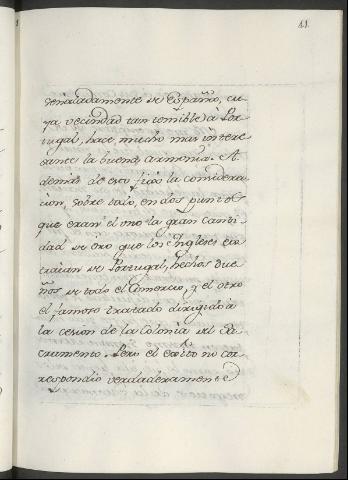 41.
señaladamente de España, cu-
ya vecindad tan temible à Por-
tugal, hace mucho mas intere-
sante la buena armonia. A-
demàs de esto fixò la considera-
cion, sobre todo, en dos puntos
que eran: el uno la gran canti-
dad de oro que los Ingleses ex-
traían de Portugal, hechos due-
ños de todo el Comercio, y el otro
el famoso tratado dirigido à
la cesion de la Colonia del Sa-
cramento. Pero el exîto no co-
rrespondiò verdaderamente